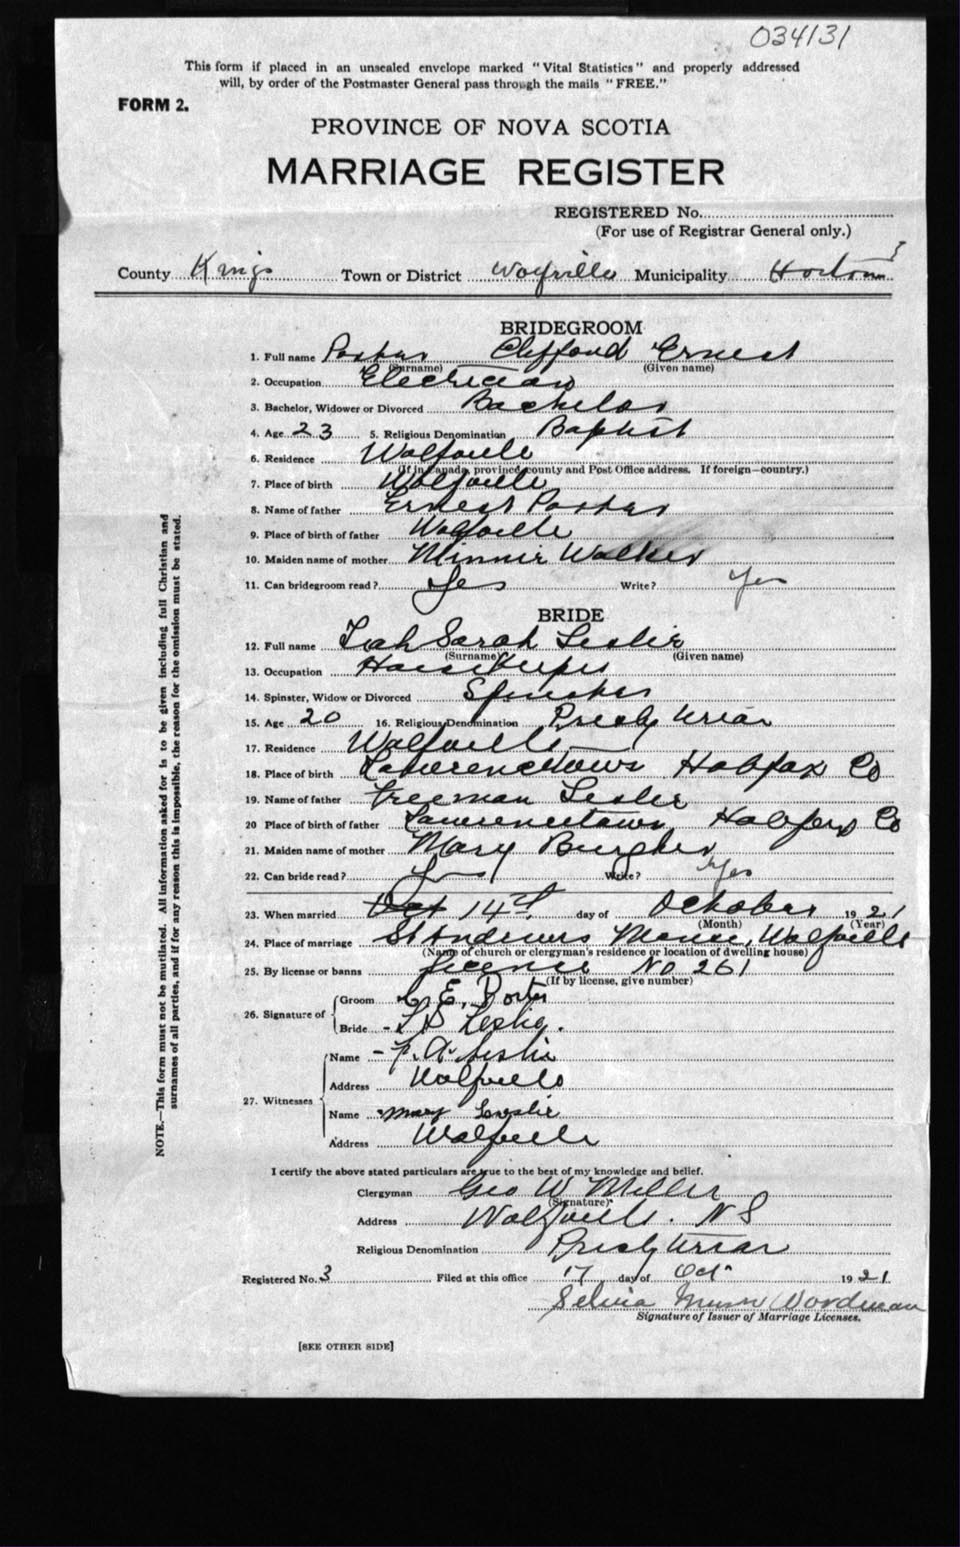 034131
This form if placed in an unsealed envelope marked "Vital Statistics" and properly addressed
will, by order of the Postmaster General pass through the mails "FREE."
FORM 2.
PROVINCE OF NOVA SCOTIA
MARRIAGE REGISTER
REGISTERED No.
(For use of Registrar General only.)
County Kings Town or District Wolfville Municipality Horton
BRIDEGROOM
1. Full name Porter Clifford Ernest
(Surname) (Given name)
2. Occupation Electrician
3. Bachelor, Widower or Divorced Bachelor
4. Age 23 5. Religious Denomination Baptist
6. Residence Wolfville
(If in Canada, province, county and Post Office address. If foreign—country.)
7. Place of birth Wolfville
8. Name of father Ernest Porter
9. Place of birth of father Wolfville
10. Maiden name of mother Minnie Walker
11. Can bridegroom read? Yes Write? Yes
BRIDE
12. Full name Sarah Leslie
(Surname) (Given name)
13. Occupation Housekeeper
14. Spinster, Widow or Divorced Spinster
15. Age 20 16. Religious Denomination Presbyterian
17. Residence Wolfville
18. Place of birth Lawrencetown Halifax Co
19. Name of father Freeman Leslie
20 Place of birth of father Lawrencetown Halifax Co
21. Maiden name of mother Mary
22. Can bride read? Yes Write? Yes
23. When married Oct 14th day of October 1921
(Month) (Year)
24. Place of marriage St Andrews Manse, Wolfville
(Name of church or clergyman's residence or location of dwelling house)
25. By license or banns License No 261
(If by license, give number)
26. Signature of Groom C. E. Porter
Bride L S Leslie.
27. Witnesses Name F. A. Leslie
Address Wolfville
Name Mary Leslie
Address Wolfville
I certify the above stated particulars are true to the best of my knowledge and belief.
Clergyman Geo W Miller
(Signature)
Address Wolfville. N S
Religious Denomination Presbyterian
Registered No. 3 Filed at this office 17 day of Oct 1921
Selvia Munn Wordman
Signature of Issuer of Marriage Licenses.
[SEE OTHER SIDE]
NOTE.—This form must not be mutilated. All information asked for is to be given including full Christian and
surnames of all parties, and if for any reason this is impossible, the reason for the omission must be stated.